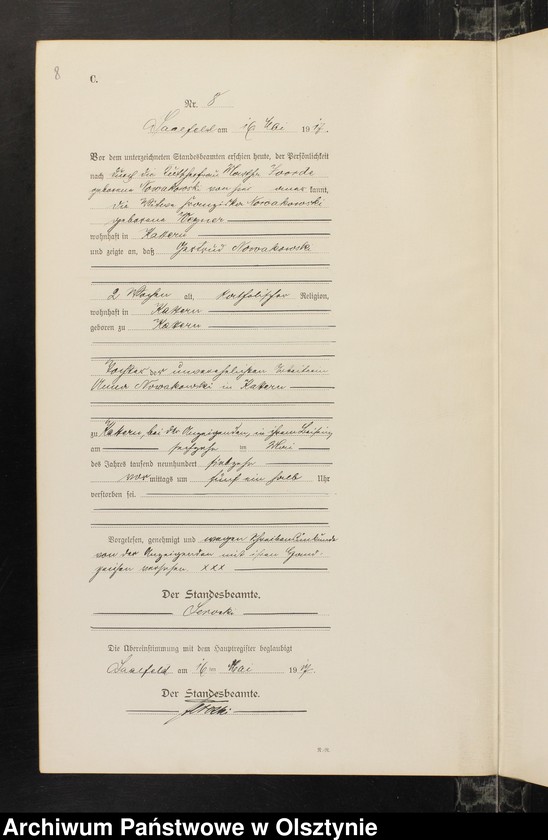 8
C.
Nr. 8
Saalfeld am 16 Mai 1917.
Vor dem unterzeichneten Standesbeamten erschien heute, der Persönlichkeit
nach durch die Martha
geborene Nowakowski kannt,
die Witwe Franziska Nowakowski
geborene Wegner
wohnhaft in Kattern
und zeigte an, daß Gertrud Nowakowski
2 Wochen alt, katholischer Religion,
wohnhaft in Kattern
geboren zu Kattern
Tochter der unverehelichten Arbeiterin
Anna Nowakowski in Kattern
zu Kattern, bei der Anzeigenden, in ihrem Beisein,
am sechzehn ten Mai
des Jahres tausend neunhundert siebzehn
vor mittags um fünf ein halb Uhr
verstorben sei.
Vorgelesen, genehmigt und wegen Schreibensunkunde
von der Anzeigenden mit ihren Hand-
zeichen versehen xxx
Der Standesbeamte.
Die Übereinstimmung mit dem Hauptregister beglaubigt
Saalfeld am 16 Mai 1917.
Der Standesbeamte.
Archiwum Państwowe w Olsztynie